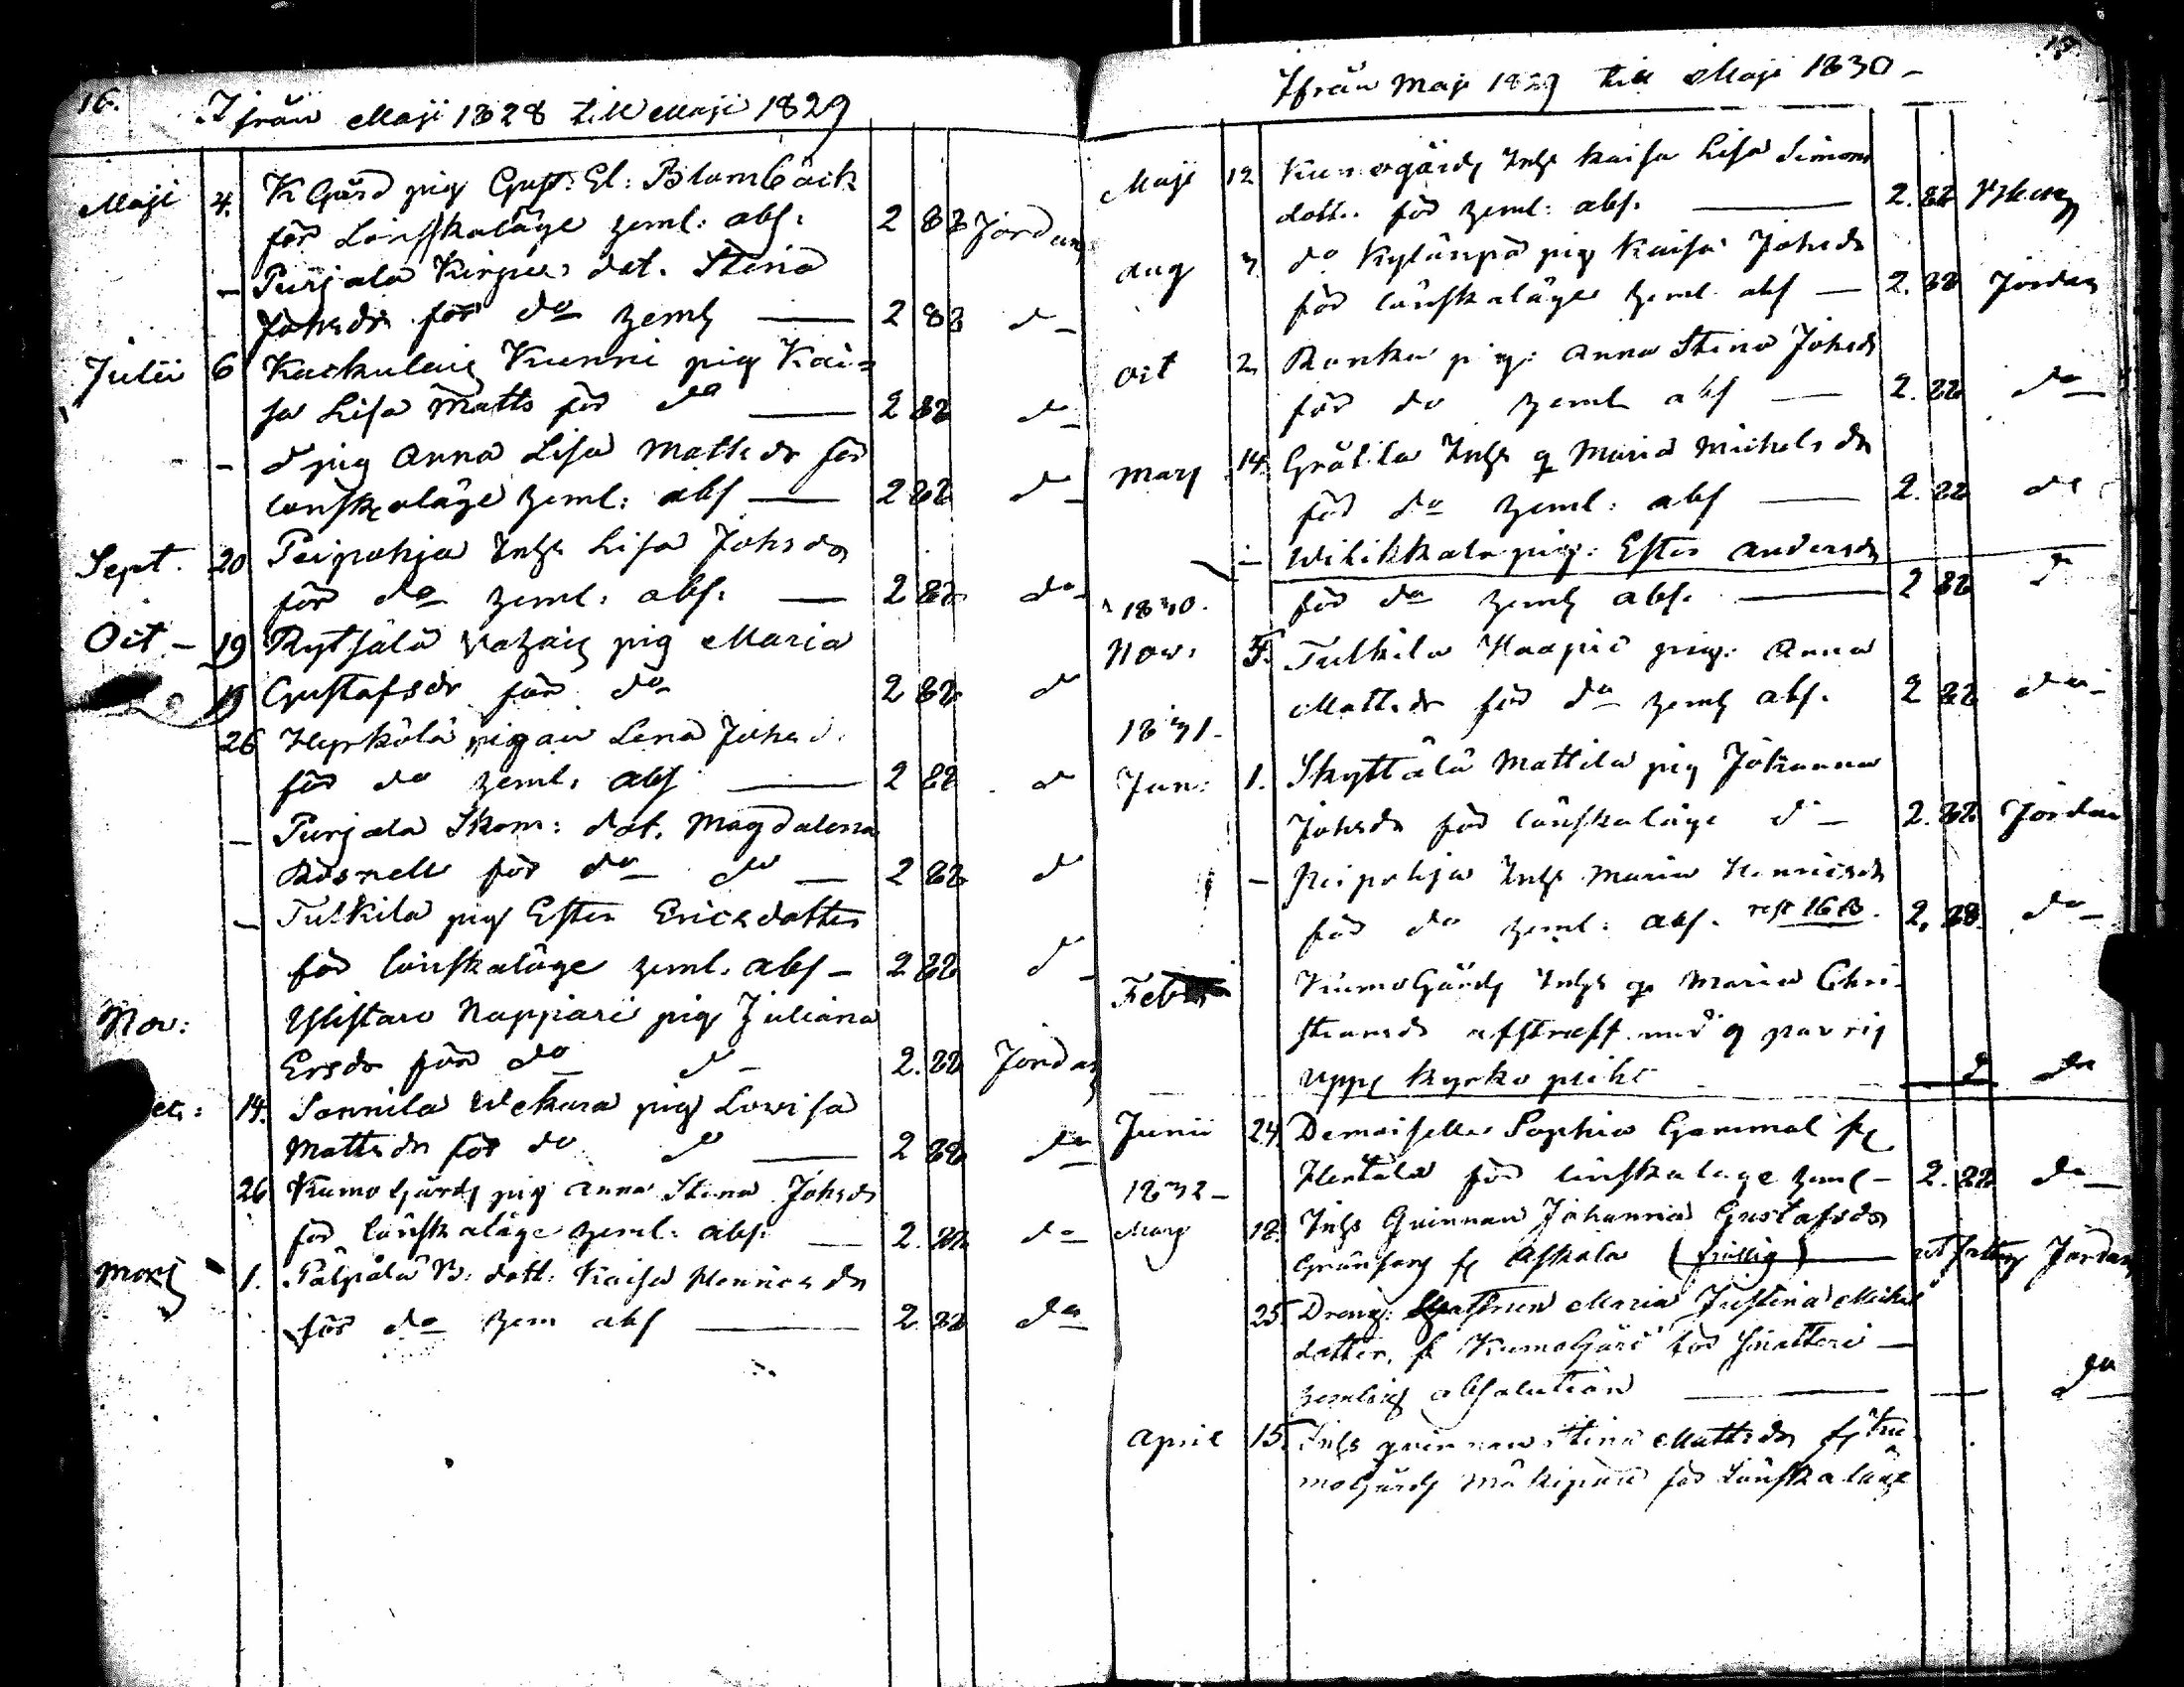 16.
Ifrån Maji 1828 till Maji 1829
Maji 4. K Gård pig Gust: El: Blombäck
för Lönskaläge heml: abs: 2 88 Jordan
— Purjala Kirpus dot. Stina
Johsdr för do heml — 2 88 do
Julii 6 Kackulais Kunni pig Kai=
sa Lisa Matts för do — 2 88 do
— do pig Anna Lisa Mattsdr för
lönskaläge heml: abs — 2 88 do
Sept. 20 Peipohja Inhs Lisa Johsdr
för do heml: abs. — 2 88 do
Oct — 19 Rytsälä pig Maria
19 Gustafsdr för do 2 88 do
26 Hyrkölä pigan Lena Johsd.
för do heml. abs — 2 88 do
— Purjala Skom: dot. Magdalena
Rosnell för do do — 2 88 do
— Tulkila pig Ester Ericsdotter
för lönskaläge heml. abs — 2 88 do
Nov: Ylistaro Nappari pig Juliana
Ersdr för do do 2. 88 Jordan
14. Sonnila Wekara pig Lovisa
Mattsdr för do do — 2 88 do
26 Kumo Gårds pig Anna Stina Johsdr
för lönskaläge heml: abs. — 2. 88 do
Mars 1. Pälpälä B: dott: Kaisa Henricsdr
för do hem abs — 2. 88 do
17.
Ifrån Maji 1829 till Maji 1830 —
Maji 12 Kumogårds Inhs Kaisa Lisa Simons
dotter för heml: abs. — 2. 88
Aug do Kylänpä pig Kaisa Johsdr
för lönskaläge heml. abs — 2. 88 Jordan
Oct 2 Ronka pig: Anna Stina Johsdr
för do heml abs — 2. 88 do
Mars 14. Gråtila Inhs q Maria Michelsdr
för do heml: abs — 2. 88 do
— Wilikkala pig: Ester Andersdr
1830. för do heml abs. — 2 88 do
Nov: Tulkila Haapio pig: Anna
Mattsdr för do heml abs. 2 88 do
1831.
Jan: 1. Skyttälä Mattila pig Johanna
Johsdr för lönskaläge do — 2. 88 Jordan
— Peipohja Inhs Maria Henricsdr
för do heml: abs. rest 16 B. 2. 88. do
Febr Kumo Gårds Inhs q Maria Chri-
stiansdr afstraff. med 9 par ris
kyrko plikt do
Junii 24. Demoiselle Sophia Gammal fr
Hertala för lönskalage heml — 2. 88 do
1832 —
Mars 18. Inhs Quinnan Johanna Gustafsdr
Grönfors fr Askola utfattig Jordan
25 Dreng: Hustrun Maria Justina Mikels
dotter, fr Kumo Gård för snatteri —
hemlig absolution — do
April 15. Inhs quinnan Stina Mattsdr fr Ku
mo Gårds Mäkipää för Lönskaläge